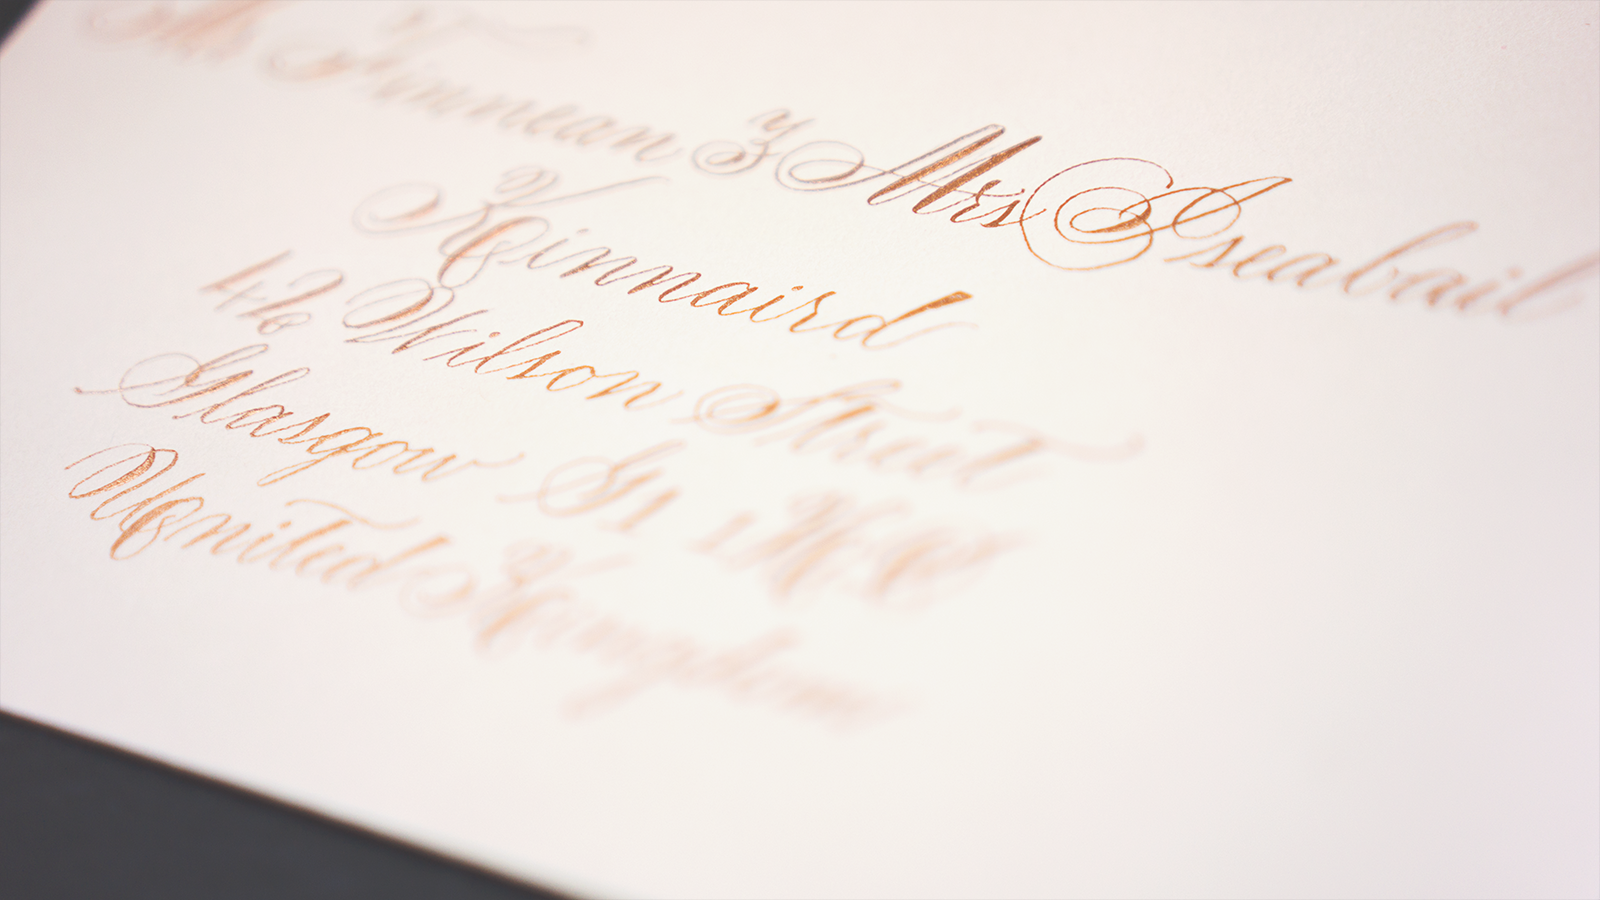 Mr Finnean & Mrs Iseabail
Kinnaird
42 Wilson Street
Glasgow G1 1
United Kingdom